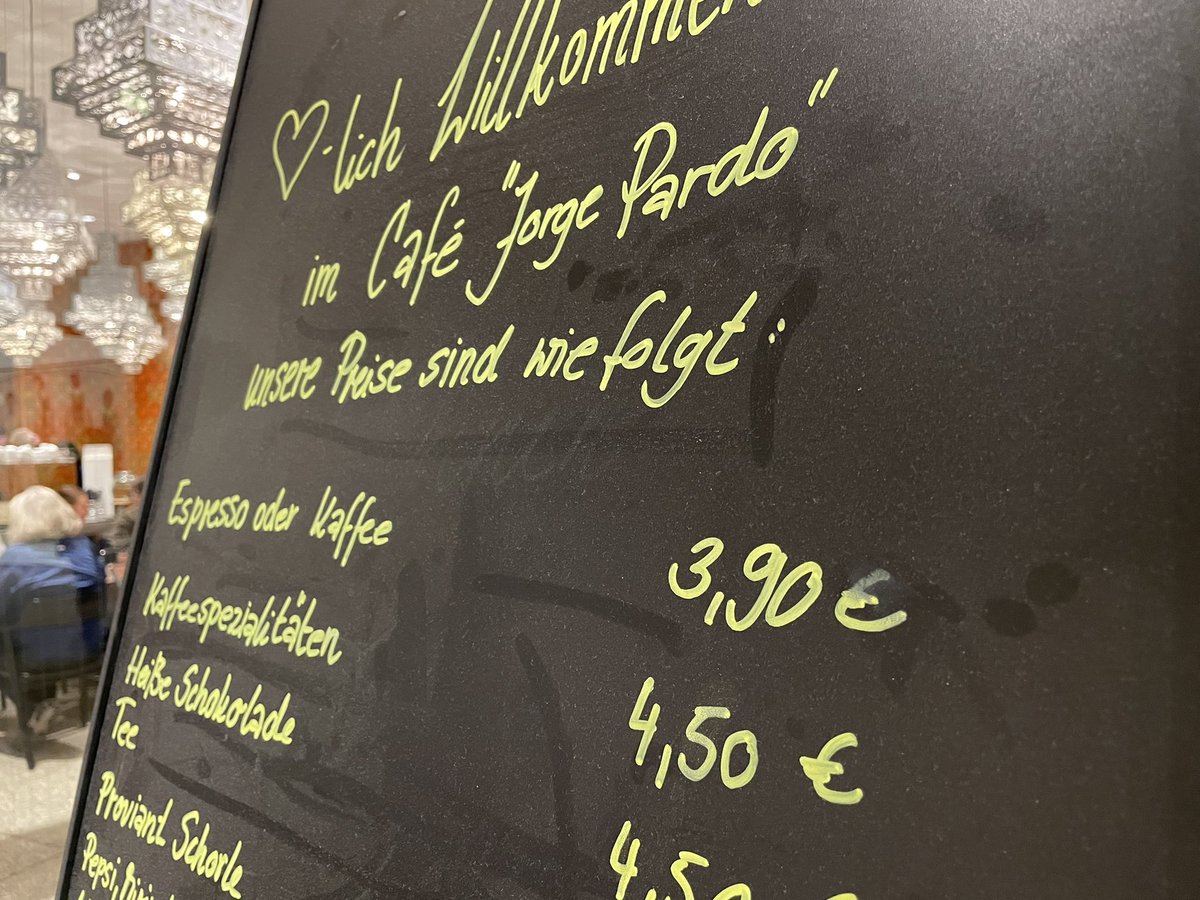 ♡-lich Willkommen
im Café "Jorge Pardo"
unsere Preise sind wie folgt:
Espresso oder Kaffee 3,90 €
Kaffeespezialitäten
Heiße Schokolade 4,50 €
Tee
Proviant Schorle 4,50
Pepsi,